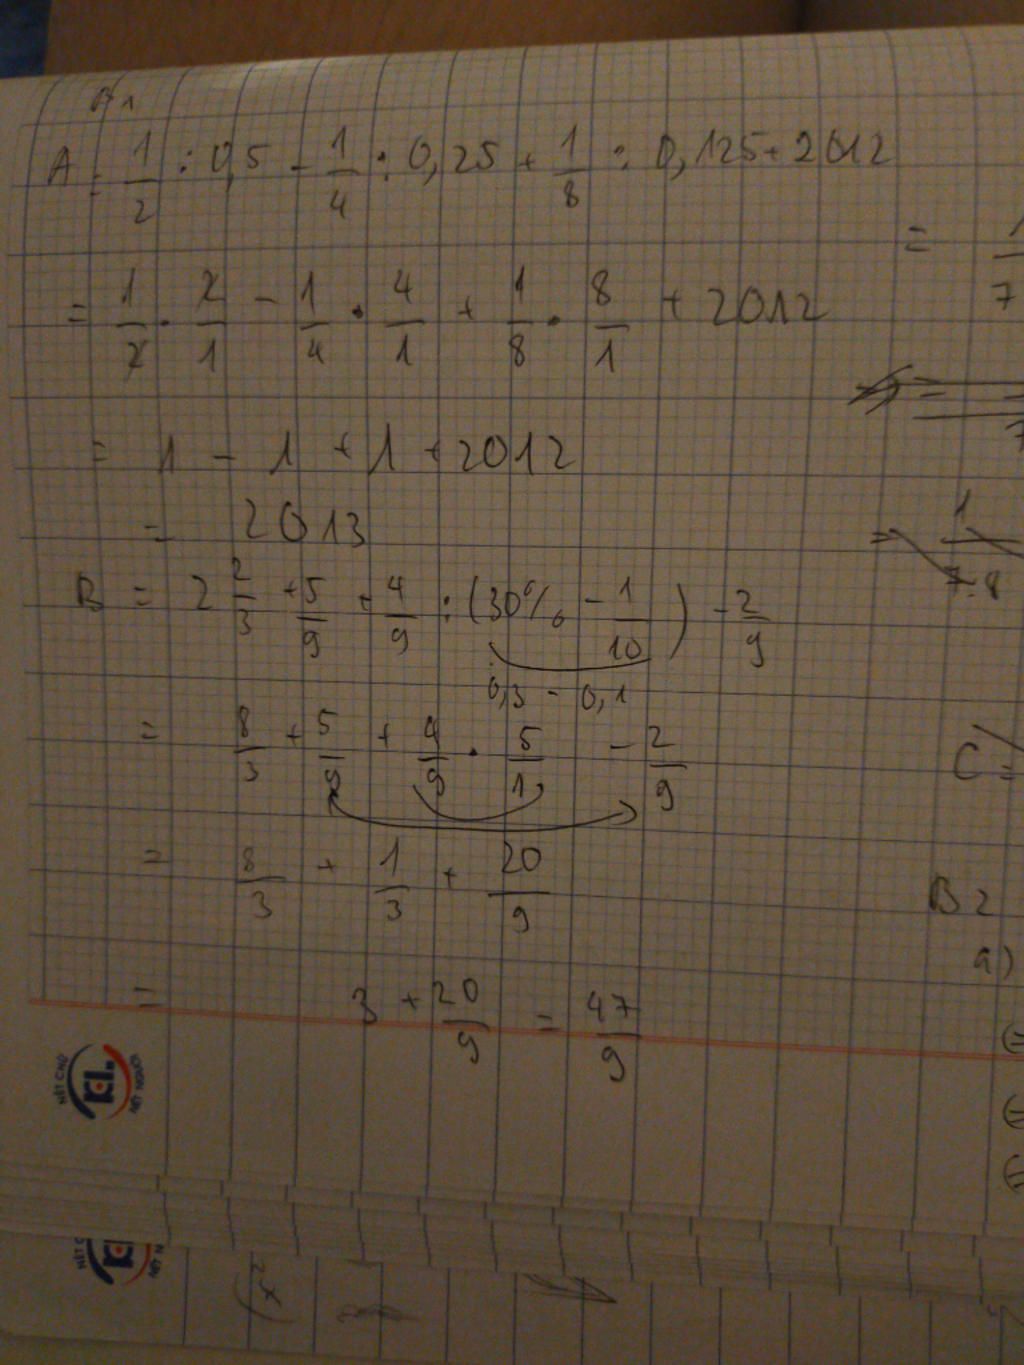 B1
A = 1/2 : 0,5 - 1/4 : 0,25 + 1/8 : 0,125 + 2012
= 1/2 . 2/1 - 1/4 . 4/1 + 1/8 . 8/1 + 2012
= 1 - 1 + 1 + 2012
= 2013
B = 2 2/3 + 5/9 + 4/9 : (30% - 1/10) - 2/9
0,3 - 0,1
= 8/3 + 5/9 + 4/9 . 5/1 - 2/9
= 8/3 + 1/3 + 20/9
= 3 + 20/9 = 47/9
= 1
7
= 1
7.8
C =
B2
a)
NÉT CHỮ
KL
NẾT NGƯỜI